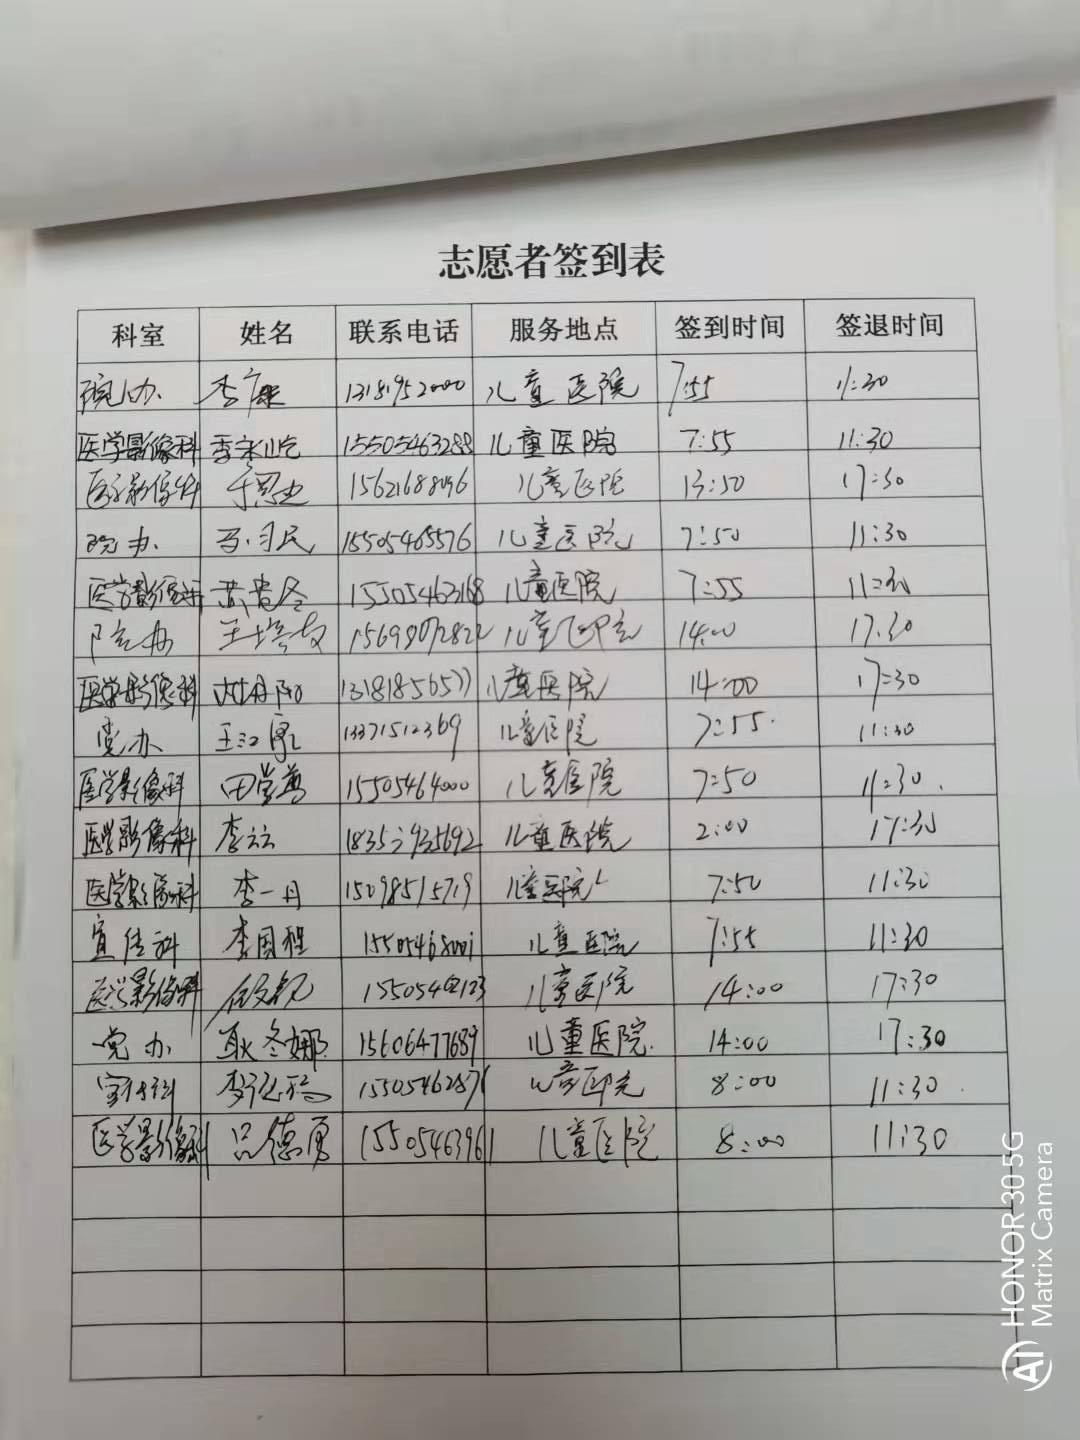 志愿者签到表
科室 姓名 联系电话 服务地点 签到时间 签退时间
院办 李康 13181952000 儿童医院 7:55 11:30
医学影像科 李永屹 15505463288 儿童医院 7:55 11:30
医学影像科 15621688096 儿童医院 13:50 17:30
院办 15505465576 儿童医院 7:50 11:30
医学影像科 15505463168 儿童医院 7:55 11:30
院办 王培友 15698072822 儿童医院 14:00 17:30
医学影像科 儿童医院 14:00 17:30
党办 13371512369 儿童医院 7:55 11:30
医学影像科 15505464000 儿童医院 7:50 11:30
医学影像科 李云云 儿童医院 2:00 17:30
医学影像科 李一丹 15098515719 儿童医院 7:50 11:30
宣传科 李国程 15505468001 儿童医院 7:55 11:30
医学影像科 儿童医院 14:00 17:30
党办 耿冬娜 15606477689 儿童医院 14:00 17:30
宣传科 15505462871 儿童医院 8:00 11:30
医学影像科 吕德勇 15505463961 儿童医院 8:00 11:30
AI HONOR 30 5G
Matrix Camera